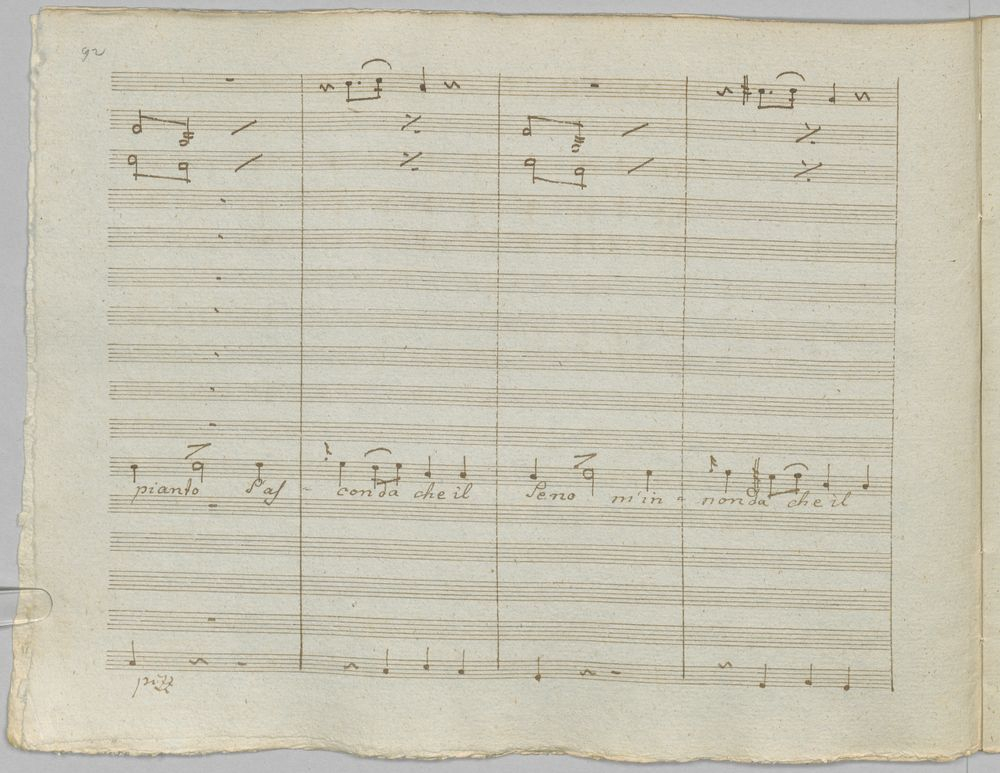 92
pianto s'as - conda che il seno m'in - nonda che il
pizz